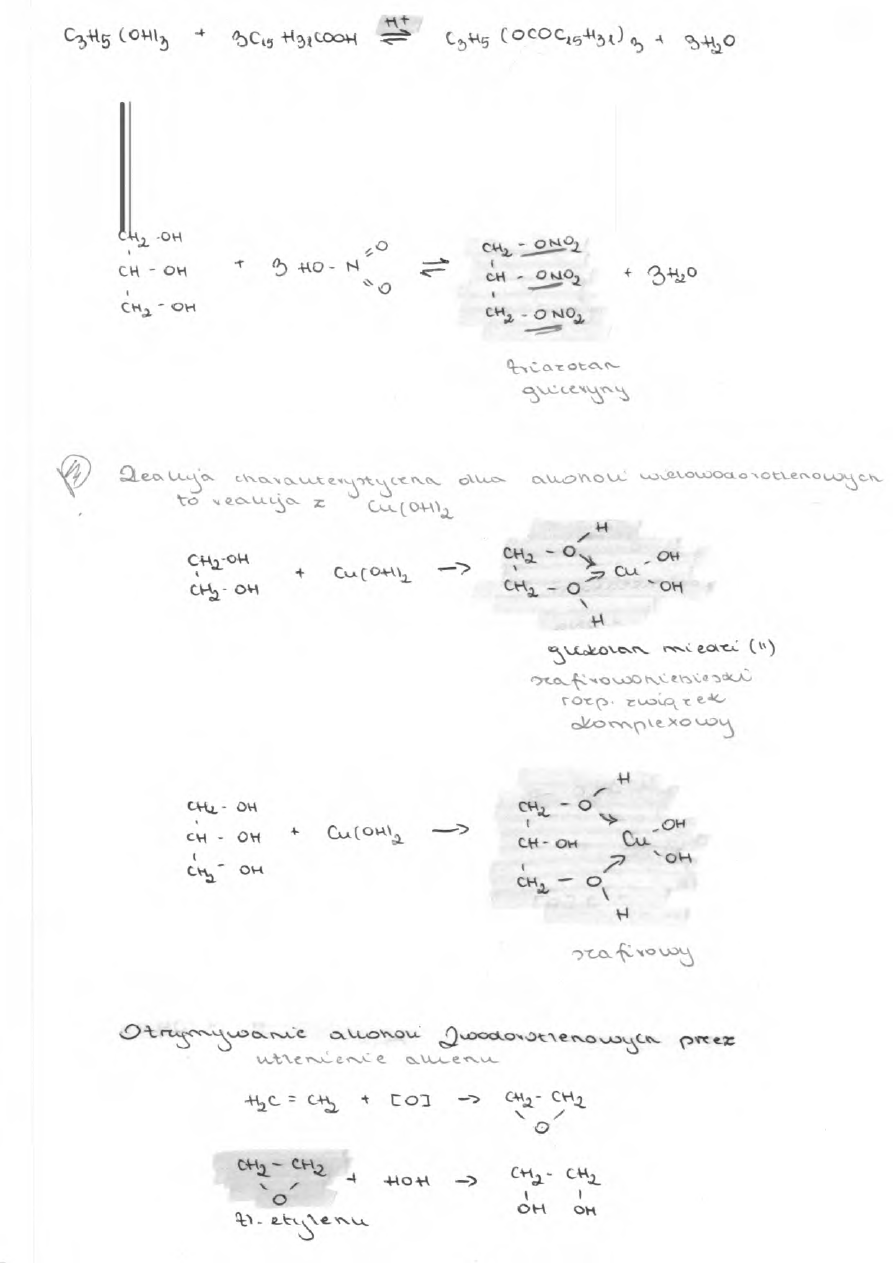 C3H5(OH)3 + 3C15H31COOH ⇌ C3H5(OCOC15H31)3 + 3H2O
H+
CH2-OH
CH-OH
CH2-OH
+ 3 HO-N
=O
=O
⇌
CH2-ONO2
CH-ONO2
CH2-ONO2
+ 3H2O
triazotan
gliceryny
Reakcja charakterystyczna dla alkoholi wielowodorotlenowych
to reakcja z Cu(OH)2
CH2-OH
CH2-OH
+ Cu(OH)2 →
H
CH2-O
CH2-O
H
Cu
OH
OH
glikolan miedzi (II)
szafirowoniebieski
rozp. związek
komplexowy
CH2-OH
CH-OH
CH2-OH
+ Cu(OH)2 →
H
CH2-O
CH-OH
CH2-O
H
Cu
OH
OH
szafirowy
Otrzymywanie alkoholi 2wodorotlenowych przez
utlenienie alkenu
H2C=CH2 + [O] → CH2-CH2
O
CH2-CH2 + HOH → CH2-CH2
O
OH OH
tl. etylenu